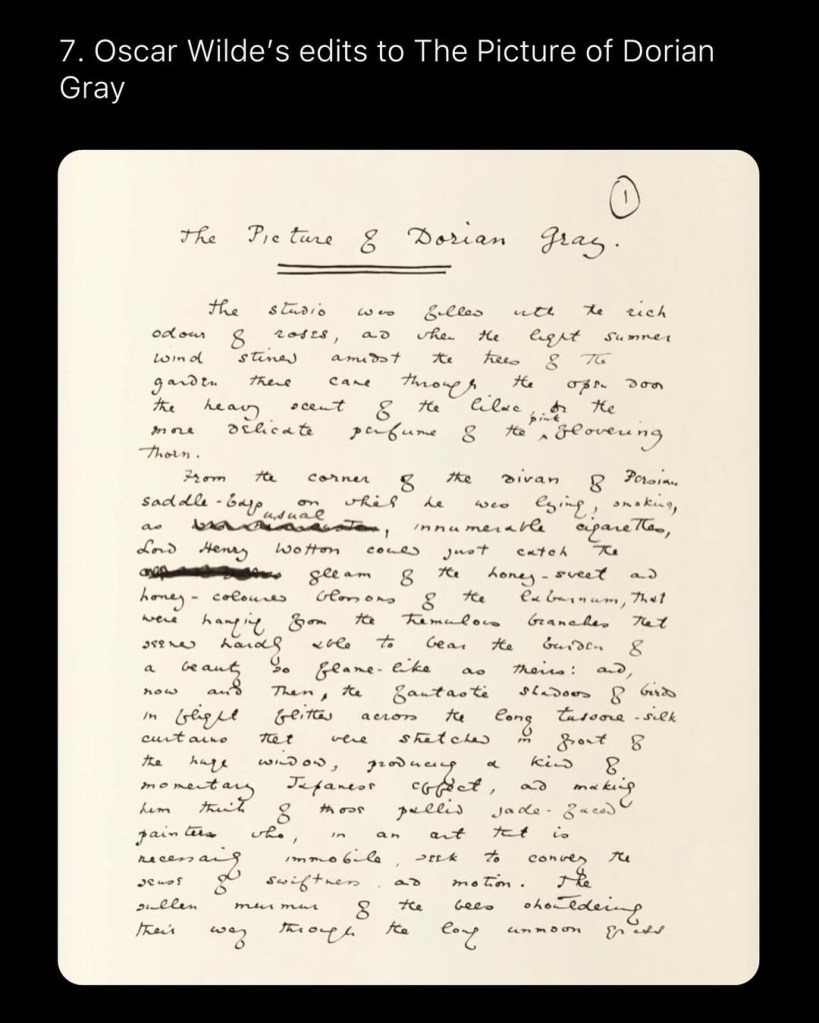 7. Oscar Wilde’s edits to The Picture of Dorian
Gray
1
The Picture of Dorian Gray.
The studio was filled with the rich
odour of roses, and when the light summer
wind stirred amidst the trees of the
garden there came through the open door
the heavy scent of the lilac, or the
more delicate perfume of the pink flowering
thorn.
From the corner of the divan of Persian
saddle-bags on which he was lying, smoking,
as usual, innumerable cigarettes,
Lord Henry Wotton could just catch the
gleam of the honey-sweet and
honey-coloured blossoms of the laburnum, that
were hanging from the tremulous branches that
seemed hardly able to bear the burden of
a beauty so flame-like as theirs: and,
now and then, the fantastic shadows of birds
in flight flitted across the long tussore-silk
curtains that were stretched in front of
the huge window, producing a kind of
momentary Japanese effect, and making
him think of those pallid jade-faced
painters who, in an art that is
necessarily immobile, seek to convey the
sense of swiftness and motion. The
sullen murmur of the bees shouldering
their way through the long unmown grass